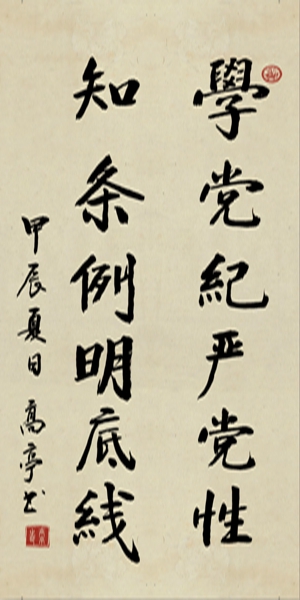 學党紀严党性
知条例明底线
甲辰夏日高亭书